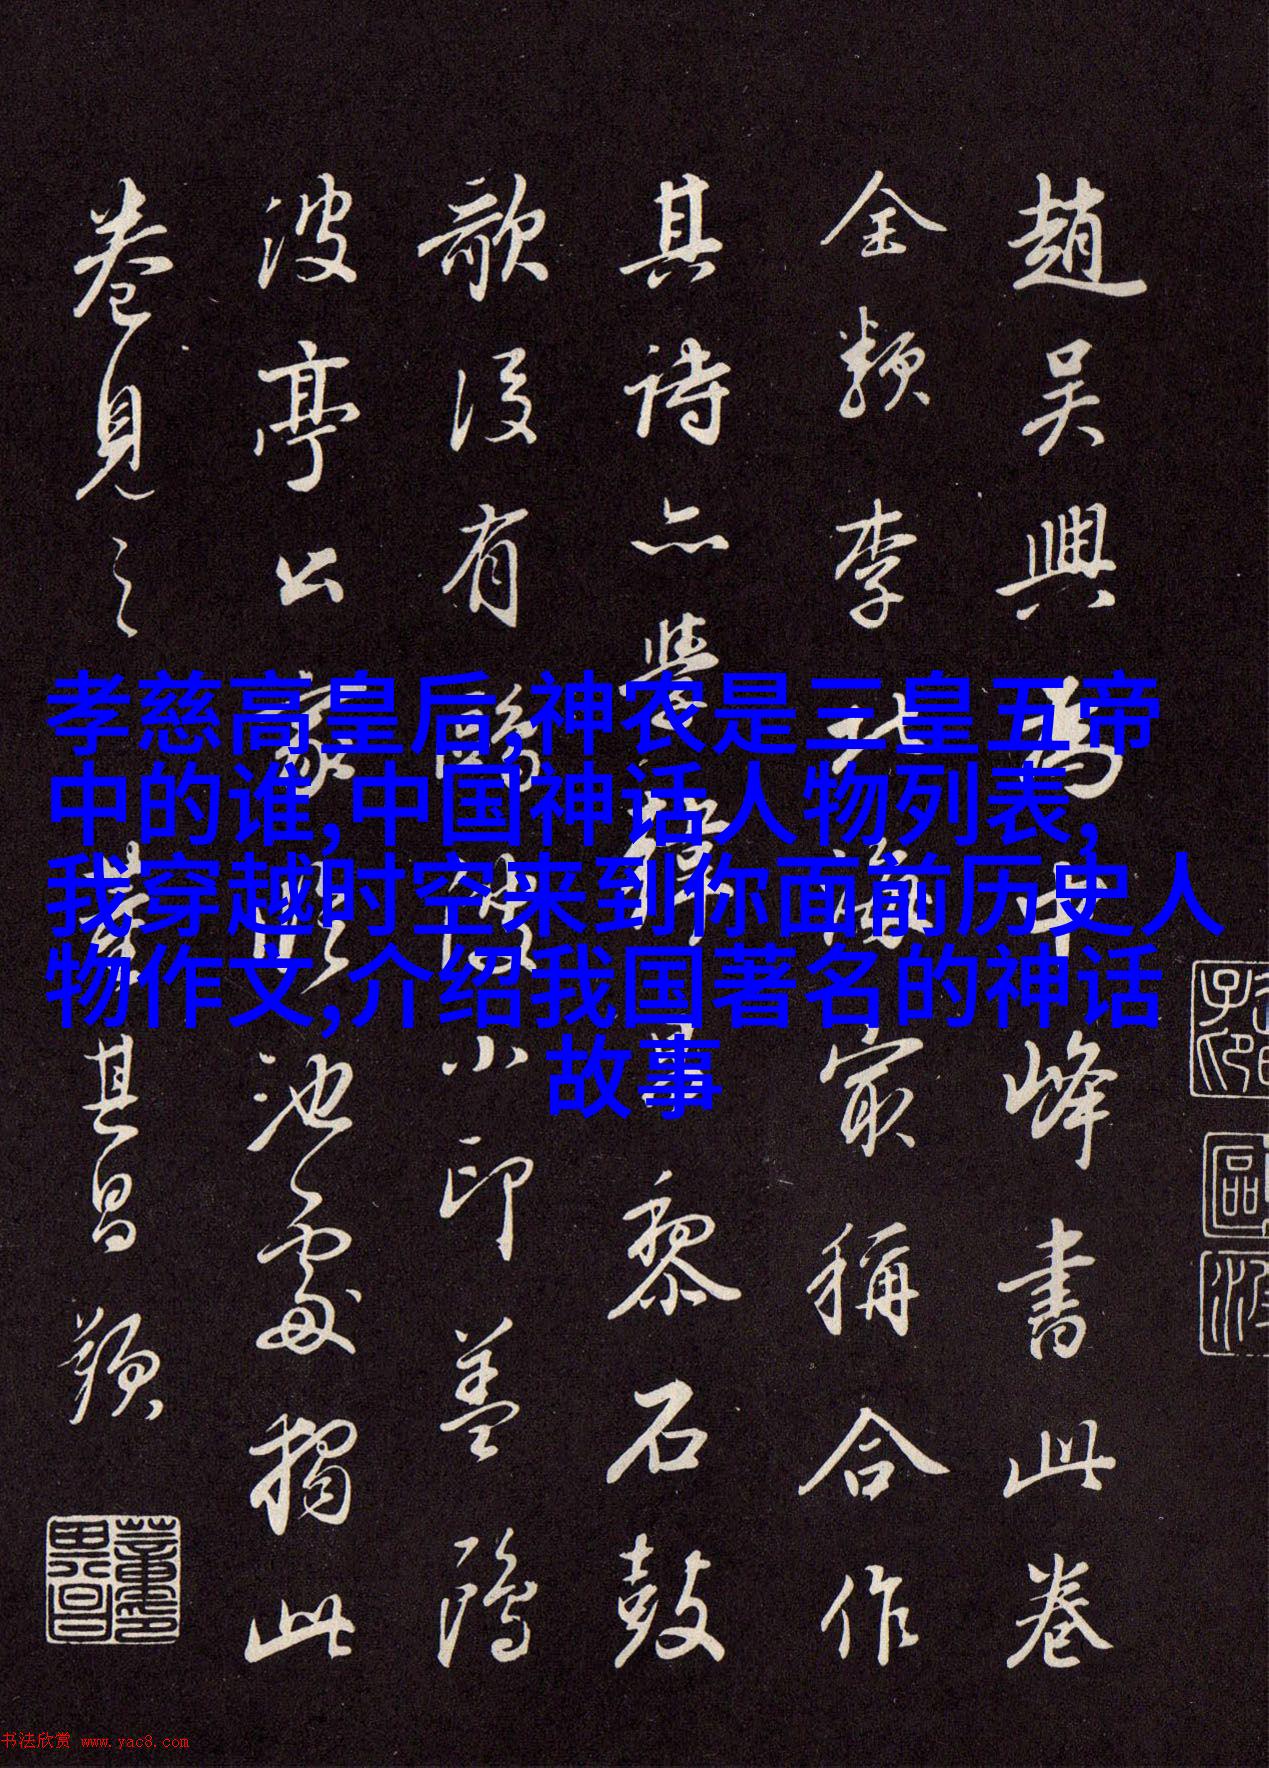 趙吳興為中峰書此卷
全類李北海最稱合作
其詩亦學韓昌黎石鼓
歌後有小印蓋鷗
波亭公家池處獨此
卷見之 董其昌題
孝慈高皇后,神农是三皇五帝
中的谁,中国神话人物列表,
我穿越时空来到你面前历史人
物作文,介绍我国著名的神话
故事
书法欣赏 www.yac8.com